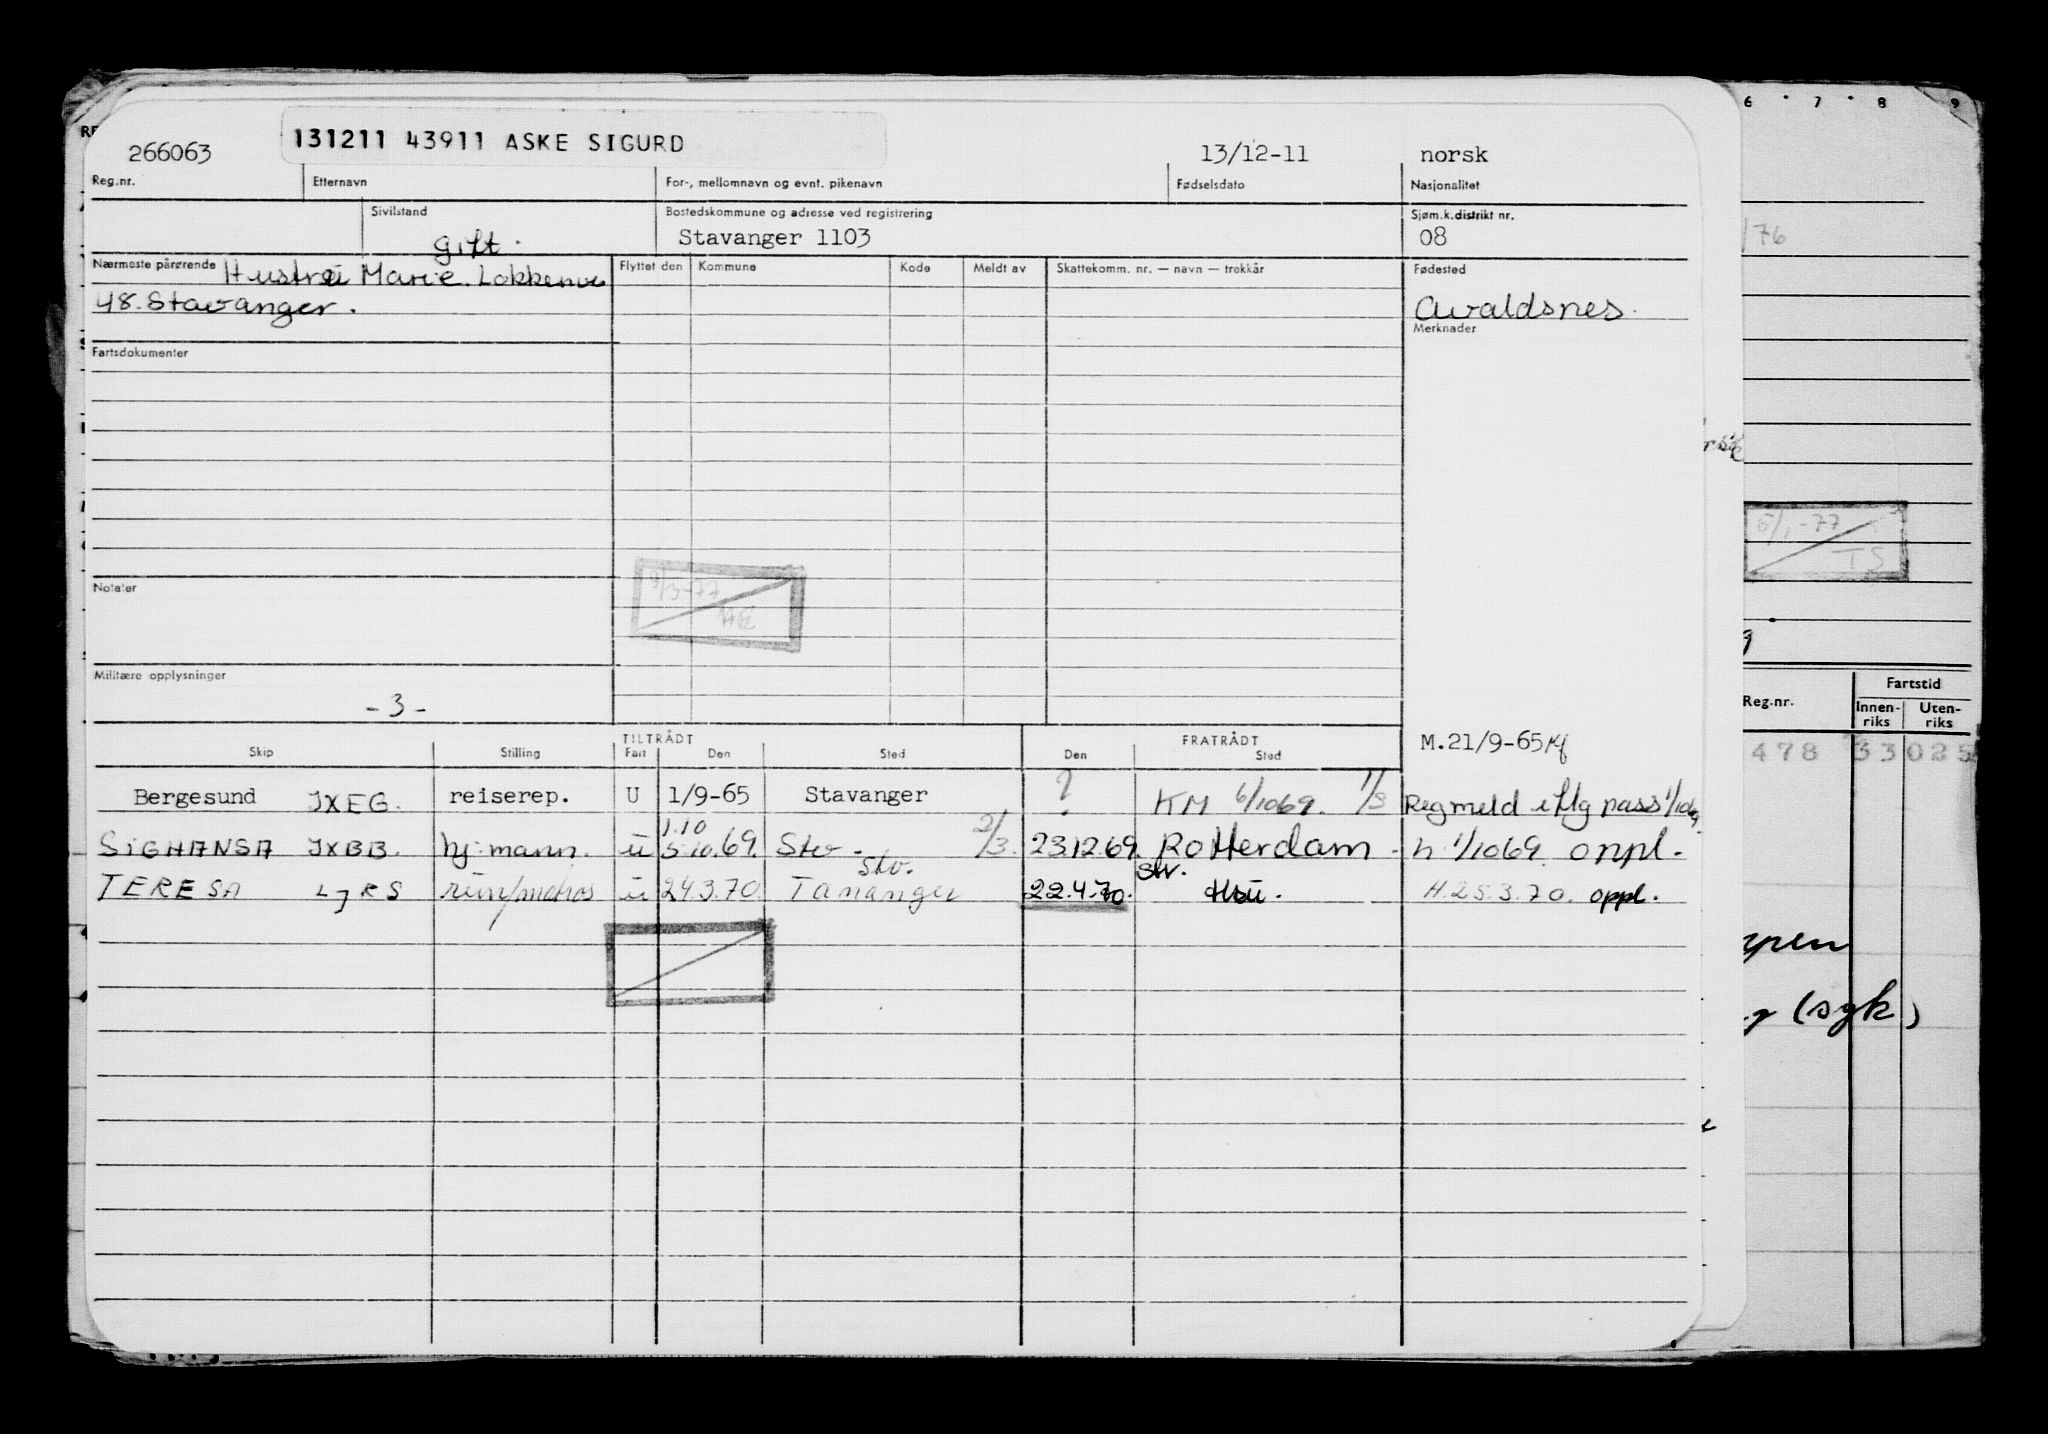 266063 131211 43911 ASKE SIGURD 13/12-11 norsk
Reg.nr. Etternavn For-, mellomnavn og evnt. pikenavn Fødselsdato Nasjonalitet
Sivilstand Bostedskommune og adresse ved registrering Sjøm.k.distrikt nr.
gift. Stavanger 1103 08
Nærmeste pårørende Hustru Marie. Flyttet den Kommune Kode Meldt av Skattekomm. nr. — navn — trekkår Fødested
48. Stavanger. Avaldsnes.
Merknader
Fartsdokumenter
9/3-77
Notater
Militære opplysninger
-3-
TILTRÅDT FRATRÅDT M.21/9-65
Skip Stilling Fart Den Sted Den Sted
Bergesund JXEG. reiserep. U 1/9-65 Stavanger ? KM 6/1069. 1/3 Reg meld iflg pass 1/1069.
1.10
SIGHANSA JXBB. hj.mann. u 5.10.69. Stv. 2/3. 23.12.69. Rotterdam. h 1/1069 oppl.
Stv. Stv.
TERESA LJRS u 24.3.70. Tananger 22.4.70. H.25.3.70. oppl.
6 7 8 9
/76
5/1-77
TS
Reg.nr. Fartstid
Innen-riks Uten-riks
478 33 025
(syk)